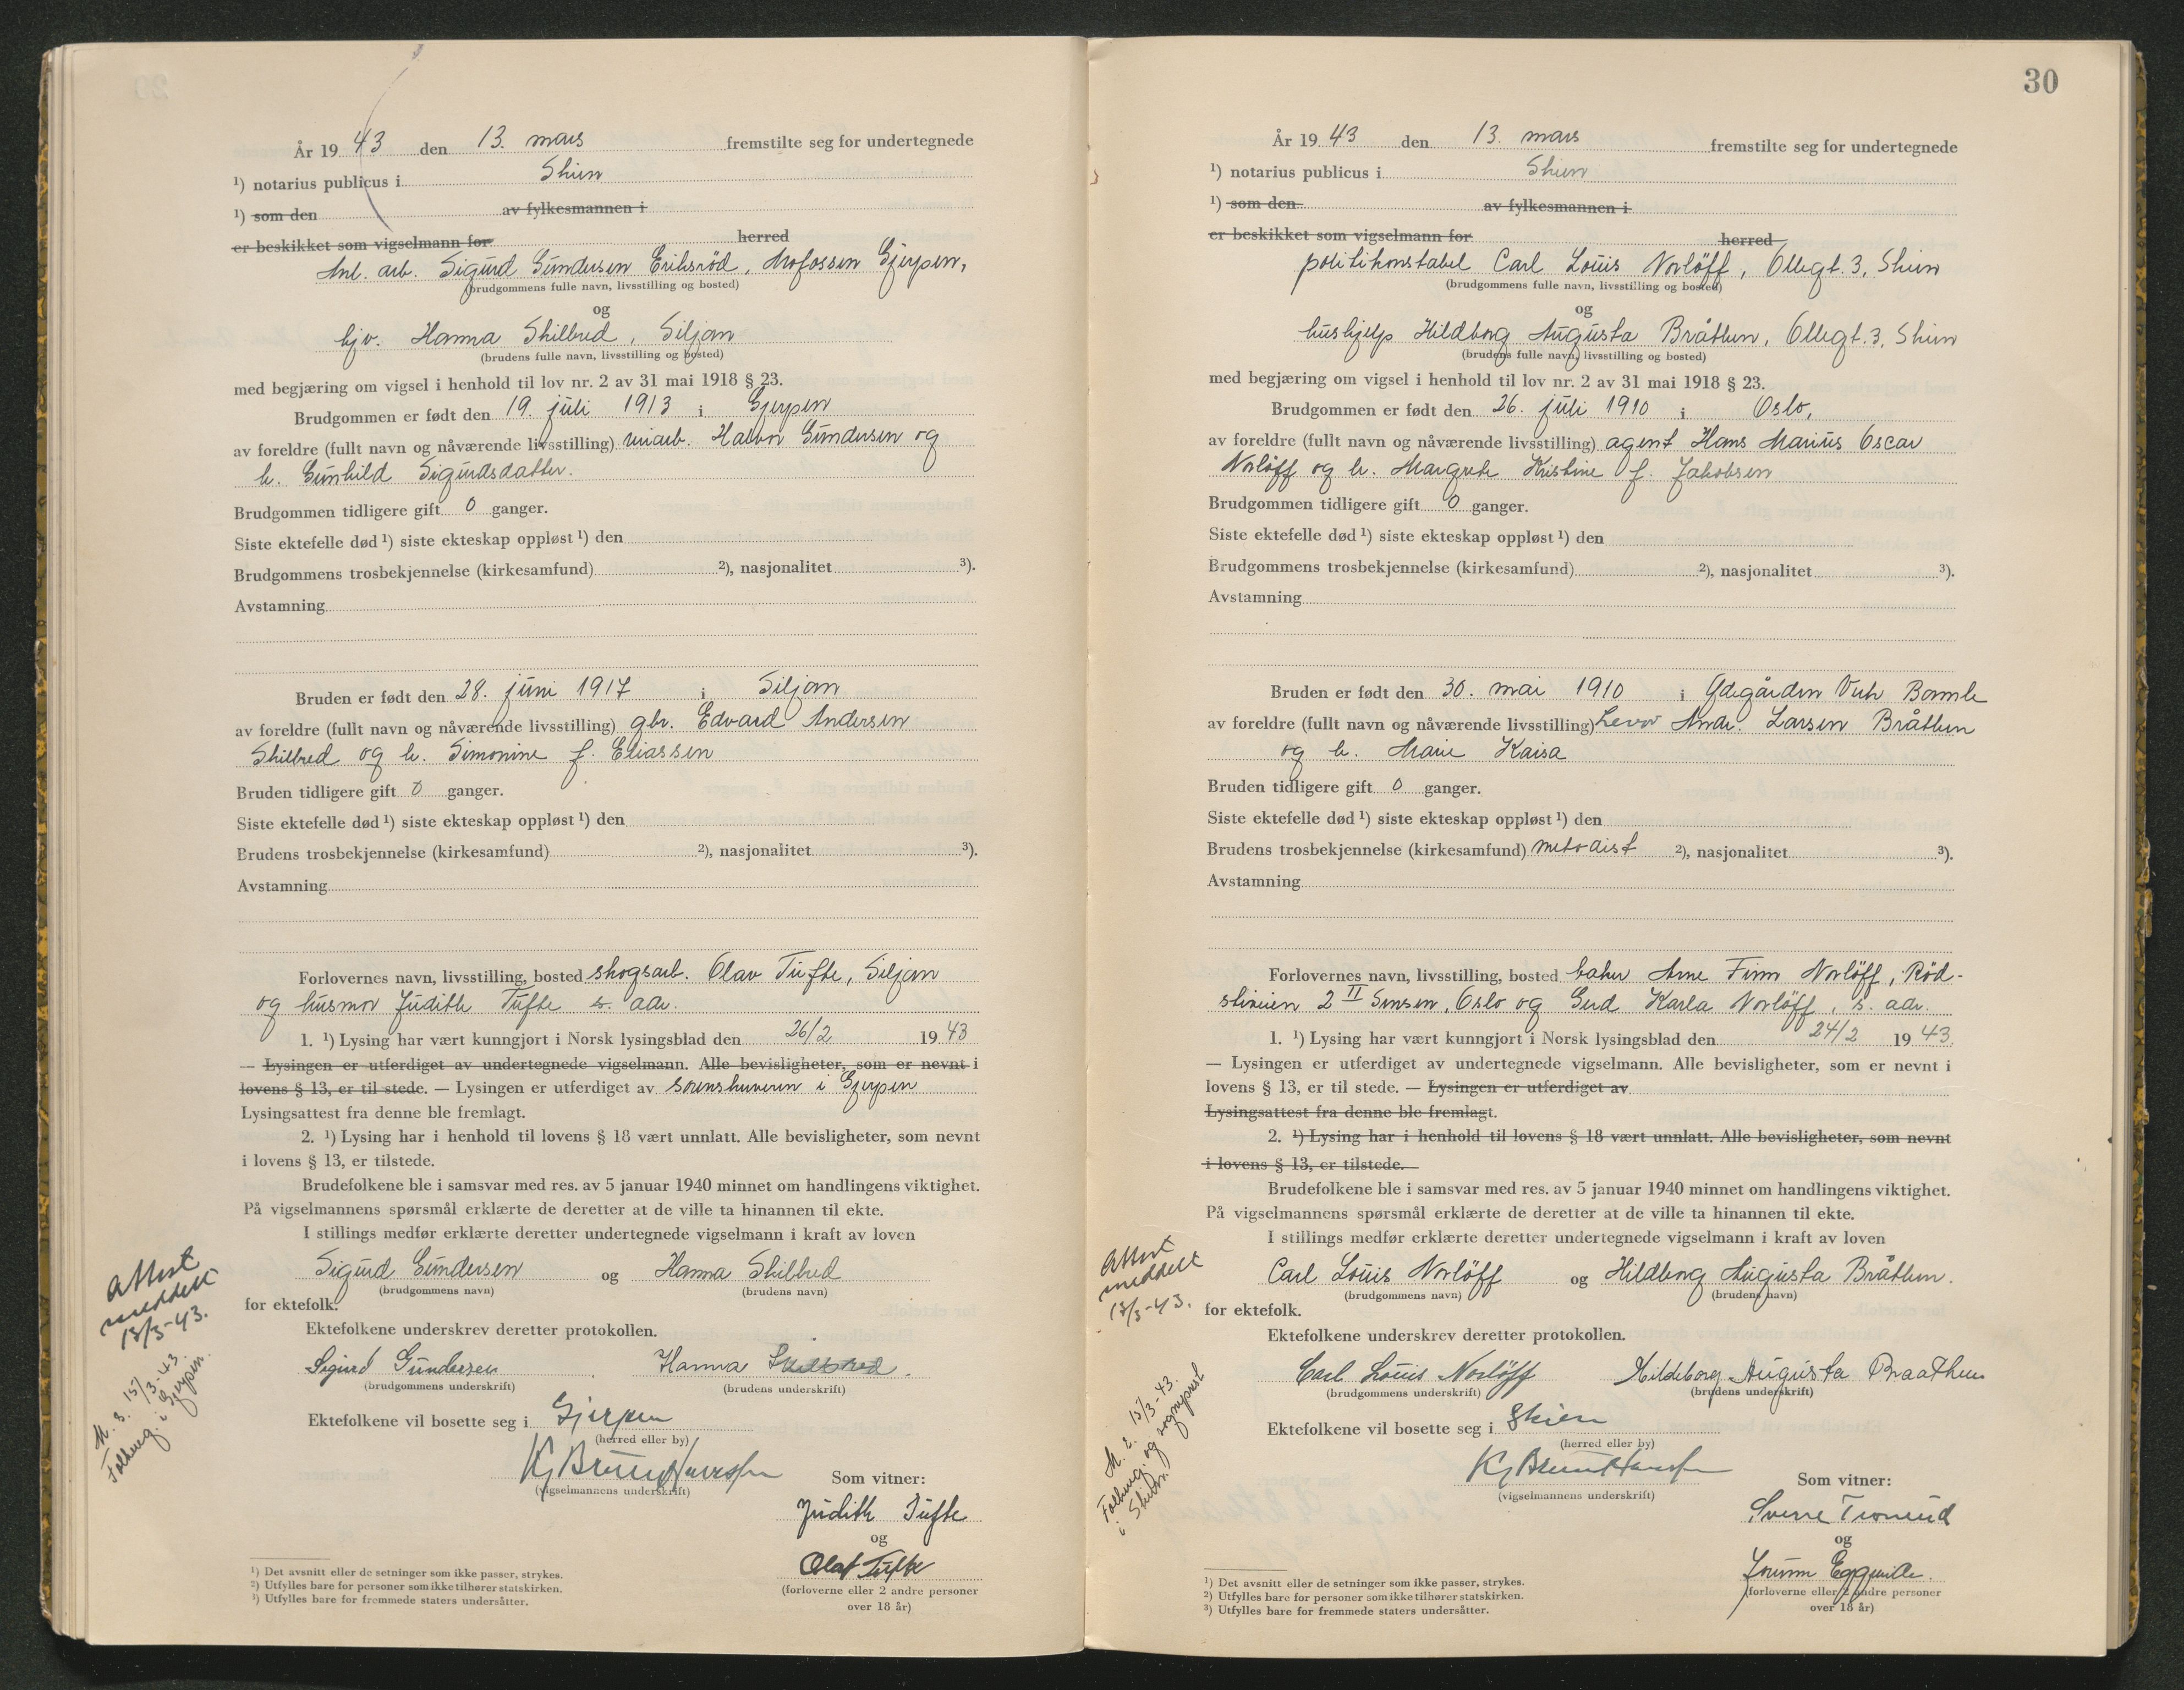 År 1943 den 13. mars fremstilte seg for undertegnede
¹) notarius publicus i Skien
¹) som den av fylkesmannen i
er beskikket som vigselmann for herred
Anl. arb. Sigurd Gundersen Eriksröd, Mofossen Gjerpen,
(brudgommens fulle navn, livsstilling og bosted)
og
hjv. Hanna Skilbred, Siljan
(brudens fulle navn, livsstilling og bosted)
med begjæring om vigsel i henhold til lov nr. 2 av 31 mai 1918 § 23.
Brudgommen er født den 19. juli 1913 i Gjerpen
av foreldre (fullt navn og nåværende livsstilling) Halvor Gundersen og
h. Gunhild Sigurdsdatter.
Brudgommen tidligere gift 0 ganger.
Siste ektefelle død ¹) siste ekteskap oppløst ¹) den
Brudgommens trosbekjennelse (kirkesamfund) ²), nasjonalitet ³).
Avstamning
Bruden er født den 28. juni 1917 i Siljan
av foreldre (fullt navn og nåværende livsstilling) gbr. Edvard Andersen
Skilbred og h. Simonine f. Eliassen
Bruden tidligere gift 0 ganger.
Siste ektefelle død ¹) siste ekteskap oppløst ¹) den
Brudens trosbekjennelse (kirkesamfund) ²), nasjonalitet ³).
Avstamning
Forlovernes navn, livsstilling, bosted skogsarb. Olav Tufte, Siljan
og husmor Judith Tufte s. adr.
1. ¹) Lysing har vært kunngjort i Norsk lysingsblad den 26/2 1943
— Lysingen er utferdiget av undertegnede vigselmann. Alle bevisligheter, som er nevnt i
lovens § 13, er til stede. — Lysingen er utferdiget av sorenskriveren i Gjerpen
Lysingsattest fra denne ble fremlagt.
2. ¹) Lysing har i henhold til lovens § 18 vært unnlatt. Alle bevisligheter, som nevnt
i lovens § 13, er tilstede.
Brudefolkene ble i samsvar med res. av 5 januar 1940 minnet om handlingens viktighet.
På vigselmannens spørsmål erklærte de deretter at de ville ta hinannen til ekte.
I stillings medfør erklærte deretter undertegnede vigselmann i kraft av loven
Sigurd Gundersen og Hanna Skilbred
(brudgommens navn) (brudens navn)
for ektefolk.
Attest
meddelt
13/3-43.
Ektefolkene underskrev deretter protokollen.
Sigurd Gundersen Hanna Skilbred.
(brudgommens underskrift) (brudens underskrift)
M. s. 15/3-43.
Folkereg. i Gjerpen.
Ektefolkene vil bosette seg i Gjerpen
(herred eller by)
(vigselmannens underskrift)
Som vitner:
Judith Tufte
og
Olaf Tufte
(forloverne eller 2 andre personer
over 18 år)
¹) Det avsnitt eller de setninger som ikke passer, strykes.
²) Utfylles bare for personer som ikke tilhører statskirken.
³) Utfylles bare for fremmede staters undersåtter.
30
År 1943 den 13. mars fremstilte seg for undertegnede
¹) notarius publicus i Skien
¹) som den av fylkesmannen i
er beskikket som vigselmann for herred
politikonstabel Carl Louis Norlöff, Ollegt. 3, Skien
(brudgommens fulle navn, livsstilling og bosted)
og
hushjelp Hildborg Augusta Bråthen, Ollegt. 3, Skien
(brudens fulle navn, livsstilling og bosted)
med begjæring om vigsel i henhold til lov nr. 2 av 31 mai 1918 § 23.
Brudgommen er født den 26. juli 1910 i Oslo,
av foreldre (fullt navn og nåværende livsstilling) agent Hans Marius Oscar
Norlöff og h. Margrete Kristine f. Jakobsen
Brudgommen tidligere gift 0 ganger.
Siste ektefelle død ¹) siste ekteskap oppløst ¹) den
Brudgommens trosbekjennelse (kirkesamfund) ²), nasjonalitet ³).
Avstamning
Bruden er født den 30. mai 1910 i Ødegården Verk Bamble
av foreldre (fullt navn og nåværende livsstilling) Andr. Larsen Bråthen
og h. Marie Kaisa
Bruden tidligere gift 0 ganger.
Siste ektefelle død ¹) siste ekteskap oppløst ¹) den
Brudens trosbekjennelse (kirkesamfund) metodist ²), nasjonalitet ³).
Avstamning
Forlovernes navn, livsstilling, bosted baker Arne Finn Norlöff, Röd-
2 II Sinsen, Oslo og Gerd Karla Norlöff, s. adr.
1. ¹) Lysing har vært kunngjort i Norsk lysingsblad den 24/2 1943.
— Lysingen er utferdiget av undertegnede vigselmann. Alle bevisligheter, som er nevnt i
lovens § 13, er til stede. — Lysingen er utferdiget av
Lysingsattest fra denne ble fremlagt.
2. ¹) Lysing har i henhold til lovens § 18 vært unnlatt. Alle bevisligheter, som nevnt
i lovens § 13, er tilstede.
Brudefolkene ble i samsvar med res. av 5 januar 1940 minnet om handlingens viktighet.
På vigselmannens spørsmål erklærte de deretter at de ville ta hinannen til ekte.
I stillings medfør erklærte deretter undertegnede vigselmann i kraft av loven
Carl Louis Norlöff og Hildborg Augusta Bråthen.
(brudgommens navn) (brudens navn)
for ektefolk.
Attest
meddelt
13/3-43.
Ektefolkene underskrev deretter protokollen.
Carl Louis Norlöff Hildeborg Augusta Braathen
(brudgommens underskrift) (brudens underskrift)
M. s. 15/3-43.
Folkereg. og sogneprest
i Skien.
Ektefolkene vil bosette seg i Skien
(herred eller by)
(vigselmannens underskrift)
Som vitner:
Sverre
og
(forloverne eller 2 andre personer
over 18 år)
¹) Det avsnitt eller de setninger som ikke passer, strykes.
²) Utfylles bare for personer som ikke tilhører statskirken.
³) Utfylles bare for fremmede staters undersåtter.